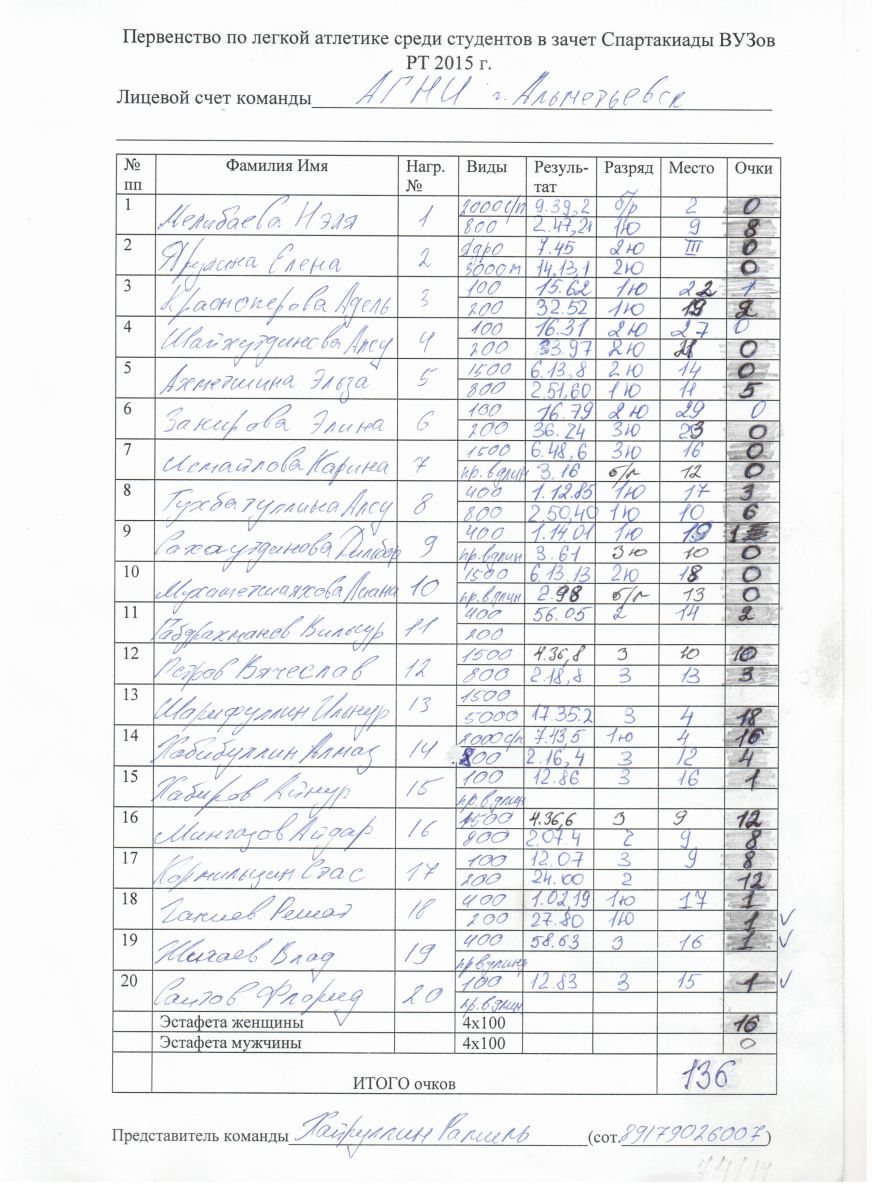 Первенство по легкой атлетике среди студентов в зачет Спартакиады ВУЗов
РТ 2015 г.
Лицевой счет команды АГНИ г. Альметьевск
№ пп Фамилия Имя Нагр. № Виды Резуль-тат Разряд Место Очки
1 Мелибаева Нэля 1 2000с/п 9.39,2 б/р 2 0
800 2.47,21 1ю 9 8
2 Елена 2 ядро 7.45 2ю III 0
3000м 14,13,1 2ю 0
3 Красноперова Адель 3 100 15.62 1ю 22 1
200 32.52 1ю 19 2
4 Шайхутдинова Алсу 4 100 16.31 2ю 27 0
200 33.97 2ю 21 0
5 Ахметшина Эльза 5 1500 6.13,8 2ю 14 0
800 2.51,60 1ю 11 5
6 Закирова Элина 6 100 16.79 2ю 29 0
200 36.24 3ю 23 0
7 Исмайлова Карина 7 1500 6.48,6 3ю 16 0
пр.в длин 3.16 б/р 12 0
8 Тухбатуллина Алсу 8 400 1.12.85 1ю 17 3
800 2.50,40 1ю 10 6
9 Сахаутдинова Дильбар 9 400 1.14.01 1ю 19 1
пр.в длин 3.61 3ю 10 0
10 Мухаметшаяхова Лиана 10 1500 6.13,13 2ю 18 0
пр.в длин 2.98 б/р 13 0
11 Габдрахманов Вильсур 11 400 56.05 2 14 2
200
12 Петров Вячеслав 12 1500 4.36,8 3 10 10
800 2.18,8 3 13 3
13 Шарифуллин Ильнур 13 1500
5000 17.35.2 3 4 18
14 Хабибуллин Алмаз 14 2000с/п 7.43 5 1ю 4 16
800 2.16,4 3 12 4
15 Хабиров Айнур 15 100 12.86 3 16 1
пр.в длин
16 Мингазов Айдар 16 1500 4.36,6 3 9 12
800 2.07.4 2 9 8
17 Кормильцин Стас 17 100 12.07 3 9 8
200 24.00 2 12
18 Решат 18 400 1.02,19 1ю 17 1
200 27.80 1ю 1 ✓
19 Влад 19 400 58.63 3 16 1 ✓
пр в длину
20 Саитов Флорид 20 100 12.83 3 15 1 ✓
пр.в длин
Эстафета женщины 4х100 16
Эстафета мужчины 4х100 0
ИТОГО очков 136
Представитель команды Хайруллин Рамиль (сот. 89179026007)